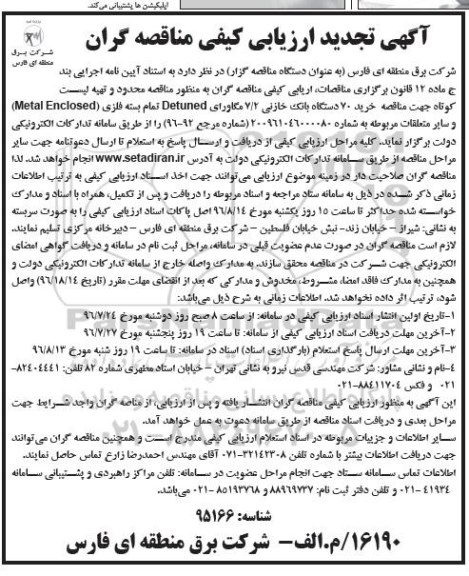 اپلیکیشن ها پشتیبانی می‌کند.
شرکت برق
منطقه ای فارس
آگهی تجدید ارزیابی کیفی مناقصه گران
شرکت برق منطقه ای فارس (به عنوان دستگاه مناقصه گزار) در نظر دارد به استناد آیین نامه اجرایی بند
ج ماده ۱۲ قانون برگزاری مناقصات، ارزیابی کیفی مناقصه گران به منظور مناقصه محدود و تهیه لیست
کوتاه جهت مناقصه خرید ۷۰ دستگاه بانک خازنی ۷/۲ مگاورای Detuned تمام بسته فلزی (Metal Enclosed)
و سایر متعلقات مربوطه به شماره ۲۰۰۹۶۱۰۴۶۰۰۰۰۸۰ (شماره مرجع ۹۲-۹۶) را از طریق سامانه تدارکات الکترونیکی
دولت برگزار نماید. کلیه مراحل ارزیابی کیفی از دریافت و ارسال پاسخ به استعلام تا ارسال دعوتنامه جهت سایر
مراحل مناقصه از طریق سامانه تدارکات الکترونیکی دولت به آدرس www.setadiran.ir انجام خواهد شد. لذا
مناقصه گران صلاحیت دار در زمینه موضوع ارزیابی می‌توانند جهت اخذ اسناد ارزیابی کیفی به ترتیب اطلاعات
زمانی ذکر شده در ذیل به سامانه ستاد مراجعه و اسناد مربوطه را دریافت و پس از تکمیل، همراه با اسناد و مدارک
خواسته شده حداکثر تا ساعت ۱۵ روز یکشنبه مورخ ۹۶/۸/۱۴ اصل پاکات اسناد ارزیابی کیفی را به صورت سربسته
به نشانی: شیراز – خیابان زند- نبش خیابان فلسطین – شرکت برق منطقه ای فارس – دبیرخانه مرکزی تسلیم نمایند.
لازم است مناقصه گران در صورت عدم عضویت قبلی در سامانه، مراحل ثبت نام در سامانه و دریافت گواهی امضای
الکترونیکی جهت شرکت در مناقصه محقق سازند. به مدارک واصله خارج از سامانه تدارکات الکترونیکی دولت و
همچنین به مدارک فاقد امضا، مشروط، مخدوش و مدارکی که بعد از انقضای مهلت مقرر (تاریخ ۹۶/۱۸/۱۴) واصل
شود، ترتیب اثر داده نخواهد شد. اطلاعات زمانی به شرح ذیل می‌باشد:
۱-تاریخ اولین انتشار اسناد ارزیابی کیفی در سامانه: از ساعت ۸ صبح روز دوشنبه مورخ ۹۶/۷/۲۴
۲-آخرین مهلت دریافت اسناد ارزیابی کیفی از سامانه: تا ساعت ۱۹ روز پنجشنبه مورخ ۹۶/۷/۲۷
۳-آخرین مهلت ارسال پاسخ استعلام (بارگذاری اسناد) اسناد در سامانه: تا ساعت ۱۹ روز شنبه مورخ ۹۶/۸/۱۳
۴-نام و نشانی مشاور: شرکت مهندسی قدس نیرو به نشانی تهران – خیابان استاد مطهری شماره ۸۲ تلفن: ۸۲۴۰۴۴۴۱-
۰۲۱ و فکس ۸۸۴۱۱۷۰۴-۰۲۱
این آگهی به منظور ارزیابی کیفی مناقصه گران انتشار یافته و پس از ارزیابی، از مناصه گران واجد شرایط جهت
مراحل بعدی و دریافت اسناد مناقصه از طریق سامانه دعوت به عمل خواهد آمد.
سایر اطلاعات و جزییات مربوطه در اسناد استعلام ارزیابی کیفی مندرج است و همچنین مناقصه گران می‌توانند
جهت دریافت اطلاعات بیشتر با شماره تلفن ۳۲۱۴۲۳۰۸-۰۷۱ آقای مهندس احمدرضا زارع تماس حاصل نمایند.
اطلاعات تماس سامانه ستاد جهت انجام مراحل عضویت در سامانه: تلفن مراکز راهبردی و پشتیبانی سامانه
۴۱۹۳۴ -۰۲۱ و تلفن دفتر ثبت نام: ۸۸۹۶۹۷۳۷ و ۸۵۱۹۳۷۶۸ -۰۲۱ می‌باشد.
شناسه: ۹۵۱۶۶
۱۶۱۹۰/م.الف- شرکت برق منطقه ای فارس